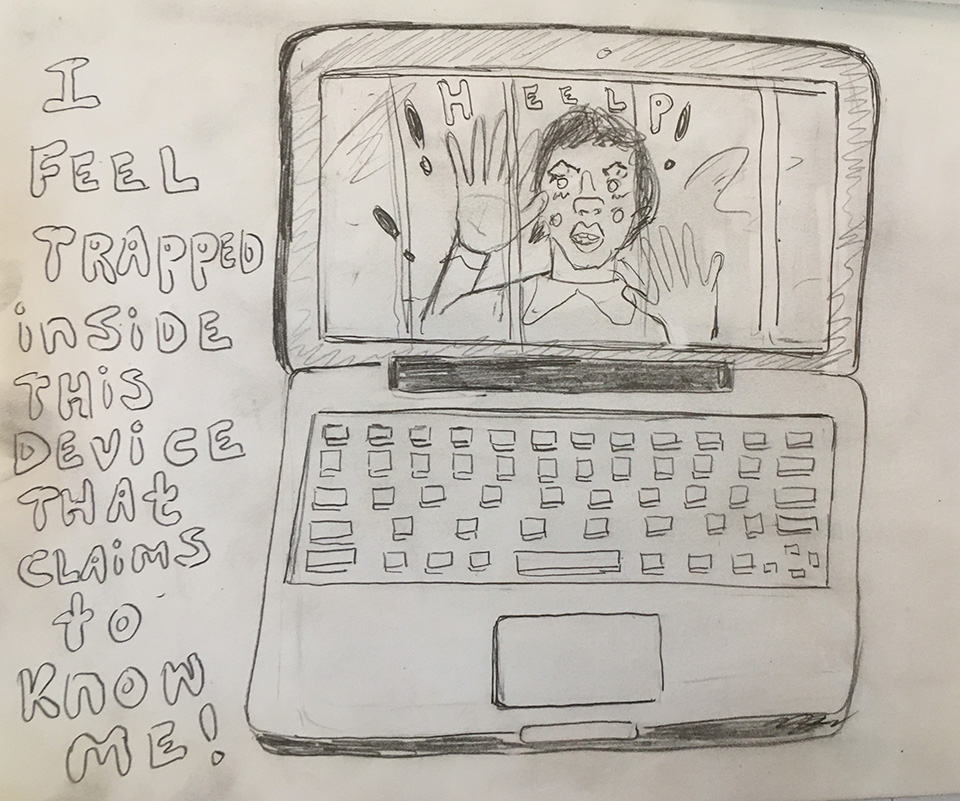 I
FEEL
TRAPPED
iNSiDE
THiS
DEViCE
THAt
CLAiMS
to
KNOW
ME!
HEELP!